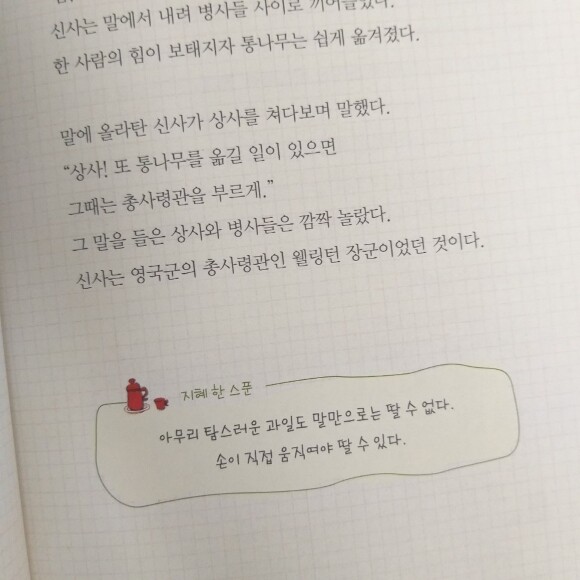 신사는 말에서 내려 병사들 사이로 끼어들었다.
한 사람의 힘이 보태지자 통나무는 쉽게 옮겨졌다.
말에 올라탄 신사가 상사를 쳐다보며 말했다.
“상사! 또 통나무를 옮길 일이 있으면
그때는 총사령관을 부르게.”
그 말을 들은 상사와 병사들은 깜짝 놀랐다.
신사는 영국군의 총사령관인 웰링턴 장군이었던 것이다.
지혜 한 스푼
아무리 탐스러운 과일도 말만으로는 딸 수 없다.
손이 직접 움직여야 딸 수 있다.